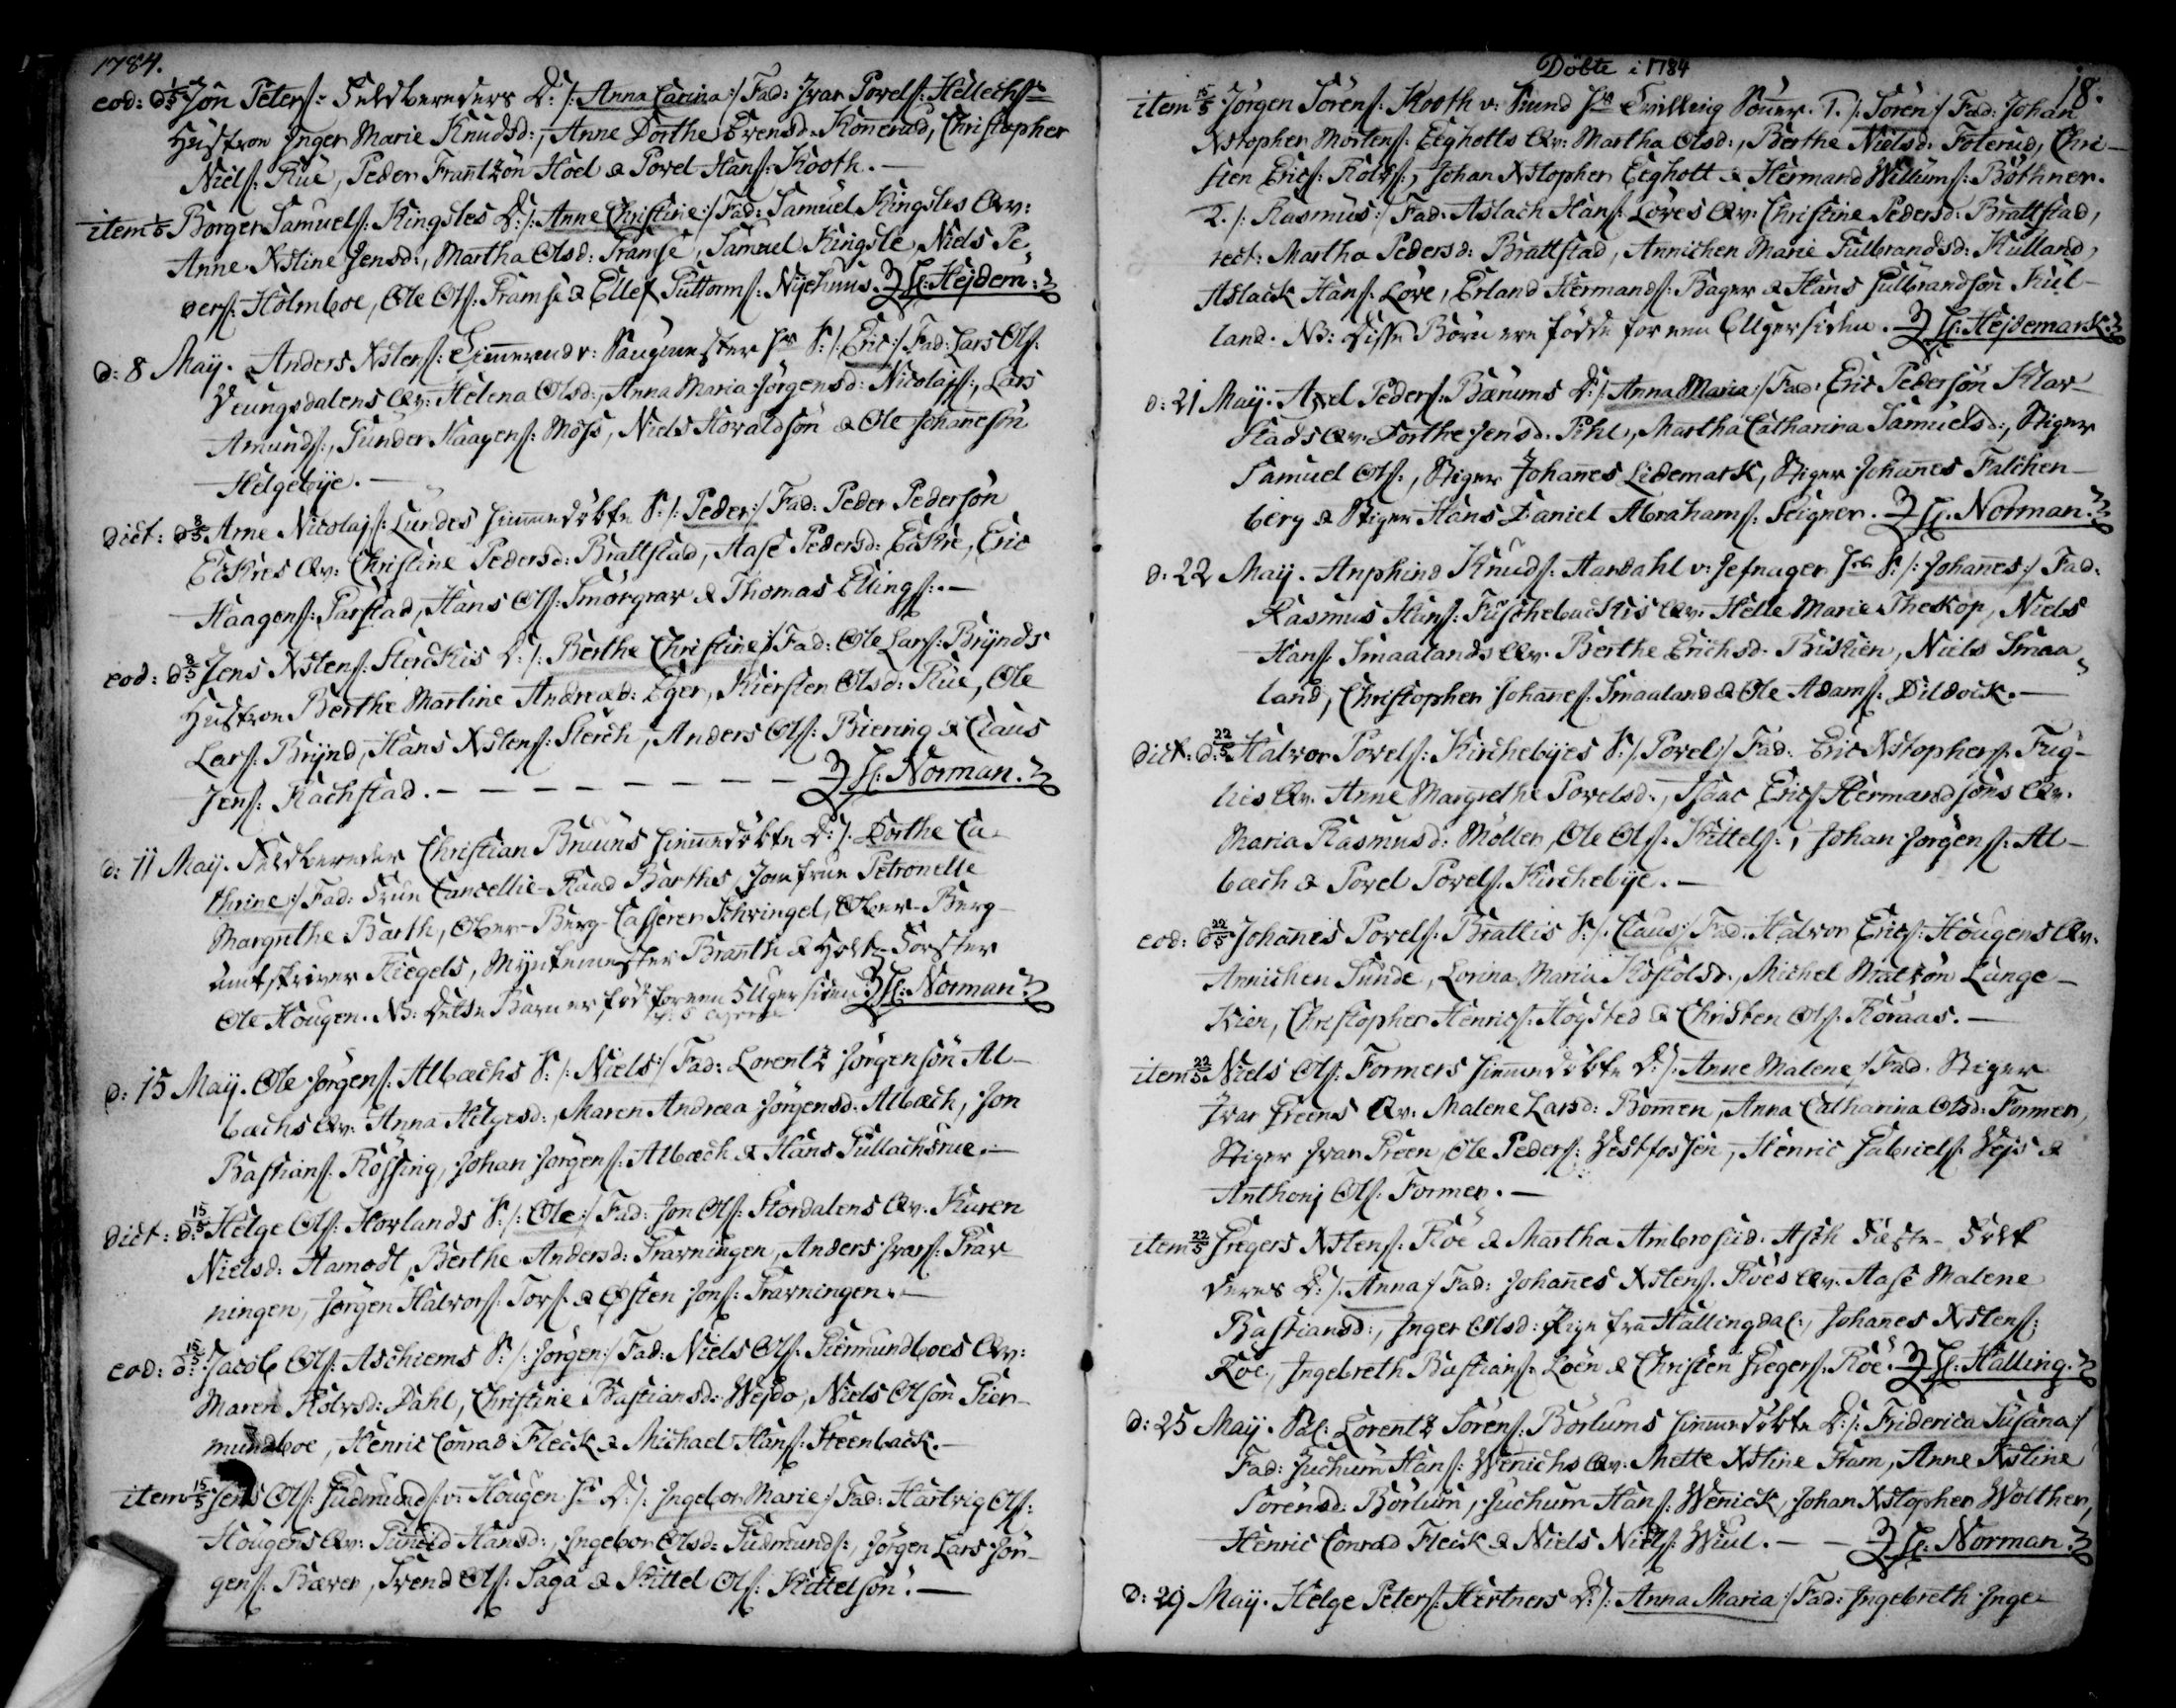 1784.
eod: d 1/5 Jon Peters: Feldbereders D: /: Anna Carina :/ Fad: Ivar Povels: Hellechs
Hustroe Inger Marie Knudsd:, Anne Dorthe Evensd: Konnerud, Christopher
Niels: Rue, Peder Frantzøn Hoel & Povel Hans: Kooth. —
item 1/5 Borger Samuels: Kingsles D: /: Anne Christine :/ Fad: Samuel Kingsles Qv:
Anne Xstine Jensd:, Martha Olsd: Framse, Samuel Kingsle, Niels Pe-
ders: Holmboe, Ole Ols: Framse & Ellef Guttorms: Nyehuus. H: Hejdem:
d: 8 May. Anders Xstens: Timmerudr: Saugmester S: /: Eric :/ Fad: Lars Ols:
Veungsdalens Qv: Helena Olsd:, Anna Maria Jørgensd: Nicolajs:, Lars
Amunds:, Gunder Haagens: Moss, Niels Hovaldsøn & Ole Johannesøn
Helgebye. —
dict: d 8/5 Arne Nicolajs: Lundes hiemmedøbte S: /: Peder :/ Fad: Peder Pedersøn
Eckres Qv: Christine Pedersd: Brattstad, Aase Pedersd: Eckre, Eric
Haagens: Parstad, Hans Ols: Smørgrav & Thomas Ellings: —
eod: d 8/5 Jens Xstens: Sterckis D: /: Berthe Christine :/ Fad: Ole Lars: Brynds
Hustroe Berthe Martine Andread: Eger, Kiersten Olsd: Rue, Ole
Lars: Brynd, Hans Xstens: Sterch, Anders Ols: Biering & Claus
Jens: Rachstad. — — — — — — — H: Norman.
d: 11 May. Feldbereder Christian Bruuns hiemmedøbte D: /: Dorthe Ca-
thrine :/ Fad: Frue Cancellie-Raad Barthes, Jomfrue Petronelle
Margrethe Barth, Ober-Berg-Casserer Schvingel, Ober-Berg-
Amtskriver Fliegels, Myntemester Branth & Holtz-Forster
Ole Hougen. NB: Dette Barn er fød for een 5 Uger siden H: Norman
d: 15 May. Ole Jørgens: Albæchs S: /: Niels :/ Fad: Lorentz Jørgensøn Al-
bæchs Qv: Anna Helgesd:, Maren Andrea Jørgensd: Albæch, Jon
Bastians: Røssing, Johan Jørgens: Albæch & Hans Gullachsrue. —
dict: d: 15/5 Helge Ols: Hovlands S: /: Ole :/ Fad: Jon Ols: Stordalens Qv: Karen
Nielsd: Aamodt, Berthe Andersd: Gravningen, Anders Ivars: Grav-
ningen, Jørgen Halvors: Tors & Østen Jons: Gravningen. —
eod: d: 15/5 Jacob Ols: Aschiems S: /: Jørgen :/ Fad: Niels Ols: Giermundboes Qv:
Maren Rolvsd: Dahl, Christine Bastiansd: Wejdo, Niels Olsøn Gier-
mundboe, Henric Conrad Fleck & Michael Hans: Steenback. —
item 15/5 Jens Ols: Gudmunds: v: Hougen D: /: Ingebor Marie :/ Fad: Hartvig Ols:
Hougens Qv: Gunild Hansd:, Ingebor Olsd: Gudmunds:, Jørgen Lars Jør-
gens: Bærer, Svend Ols: Saga & Kittel Ols: Kittelsøn. —
Döbte i 1784
18.
item 15/5 Jørgen Sørens: Kooth v: Sund Tvilling Sønner. 1. /: Søren :/ Fad: Johan
Xstopher Mortens: Eegholts Qv: Martha Olsd:, Berthe Nielsd: Foterud, Chri-
sten Erics: Rolvs:, Johan Xstopher Eegholt & Hermand Willums: Bøthner.
2. /: Rasmus :/ Fad: Aslach Hans: Løves Qv: Christine Pedersd: Brattstad,
rect: Martha Pedersd: Brattstad, Annichen Marie Gulbrandsd: Kulland,
Aslack Hans: Løve, Erland Hermands: Bager & Hans Gulbrandsøn Kul-
land. NB: Disse Børn ere fødde for een Uger siden. H: Hejdemark
d: 21 May. Axel Peders: Bærums D: /: Anna Maria :/ Fad: Eric Pedersøn Klav-
stads Qv: Dorthe Jensd: Pihl, Martha Catharina Samuelsd:, Stiger
Samuel Ols:, Stiger Johanes Lidemark, Stiger Johanes Falchen-
berg & Stiger Hans Daniel Abrahams: Seigner. H: Norman.
d: 22 May. Anphind Knuds: Hardahl v: Jefnager S: /: Johanes :/ Fad:
Rasmus Hans: Fuschebachis Qv: Helle Marie Theskop, Niels
Hans: Smaalands Qv: Berthe Erichsd: Biskien, Niels Smaa-
land, Christopher Johanes: Smaaland & Ole Adams: Dildock. —
dict: d: 22/5 Halvor Povels: Kirchebyes S: /: Povel :/ Fad: Eric Xstophers: Fug-
lies Qv: Anne Margrethe Povelsd:, Isaac Erics: Hermandsøns Qv:
Maria Rasmusd: Møller, Ole Ols: Kittels:, Johan Jørgens: Al-
bæch & Povel Povels: Kirchebye. —
eod: d 22/5 Johanes Povels: Brattis S: /: Claus :/ Fad: Halvor Erics: Hougens Qv:
Annichen Lunde, Lorina Maria Roskolsd:, Michel Matzøn Lange-
kien, Christopher Henrics: Høgsted & Christen Ols: Røraas. —
item 22/5 Niels Ols: Formers hiemmedøbte D: /: Anne Malene :/ Fad: Stiger
Ivar Greens Qv: Malene Larsd: Bomen, Anna Catharina Olsd: Former,
Stiger Ivar Green, Ole Peders: Vestfossen, Henric Gabriels: Vejs &
Anthonj Ols: Former. —
item 22/5 Gregers Xstens: Roe & Martha Ambrosiid: Asch Fæste-Folk
deres D: /: Anna :/ Fad: Johanes Xstens: Roes Qv: Aase Malene
Bastiansd:, Inger Olsd: Pige fra Hallingdal:, Johanes Xstens:
Roe, Ingebreth Bastians: Loen & Christen Gregers: Roe. H: Halling.
d: 25 May. Sal: Lorentz Sørens: Børlums hiemmedøbte D: /: Friderica Susana :/
Fad: Juchum Hans: Wenichs Qv: Mette Xstine Kram, Anne Xstine
Sørensd: Børlum, Juchum Hans: Wenick, Johan Xstopher Wolther,
Henric Conrad Fleck & Niels Niels: Wiul. — — H: Norman
d: 29 May. Helge Peters: Hertners D: /: Anna Maria :/ Fad: Ingebreth Inge-